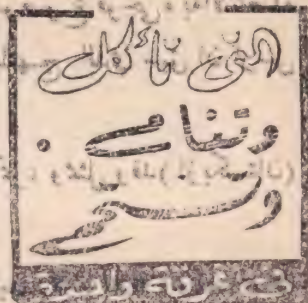 التى تأكل
وتنام .
وتسرى
فى غرفة واحدة